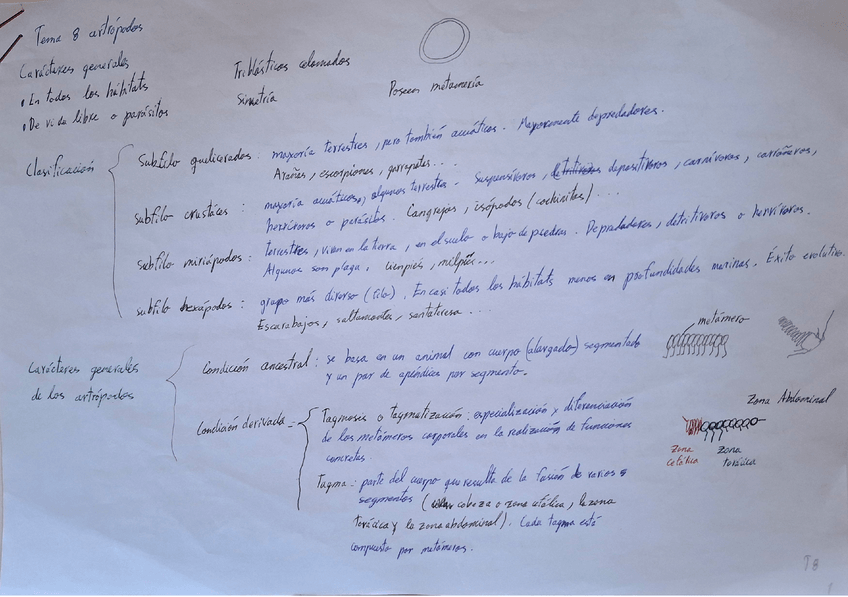 Tema 8 artrópodos
Carácteres generales
Triblásticos celomados
• En todos los hábitats
Simetría
Poseen metamería
• De vida libre o parásitos
Clasificación
Subfilo quelicerados: mayoría terrestres, pero también acuáticos. Mayormente depredadores.
Arañas, escorpiones, garrapatas...
subfilo crustáceos: mayoría acuáticos, algunos terrestres. Suspensívoros, detritívoros depositívoros, carnívoros, carroñeros,
herbívoros o parásitos. Cangrejos, isópodos (cochinitas)...
subfilo miriápodos: terrestres, viven en la tierra, en el suelo o bajo de piedras. Depredadores, detritívoros o herbívoros.
Algunos son plaga, ciempiés, milpiés...
subfilo hexápodos: grupo más diverso (filo). En casi todos los hábitats menos en profundidades marinas. Éxito evolutivo.
Escarabajos, saltamontes, santateresa...
Carácteres generales
de los artrópodos
Condición ancestral: se basa en un animal con cuerpo (alargado) segmentado
y un par de apéndices por segmento.
metámero
Condición derivada
Tagmosis o tagmatización: especialización y diferenciación
de los metámeros corporales en la realización de funciones
concretas.
Tagma: parte del cuerpo que resulta de la fusión de varios
segmentos ( cabeza o zona cefálica, la zona
torácica y la zona abdominal). Cada tagma está
compuesto por metámeros.
Zona Abdominal
Zona
cefálica
Zona
torácica
T8
1